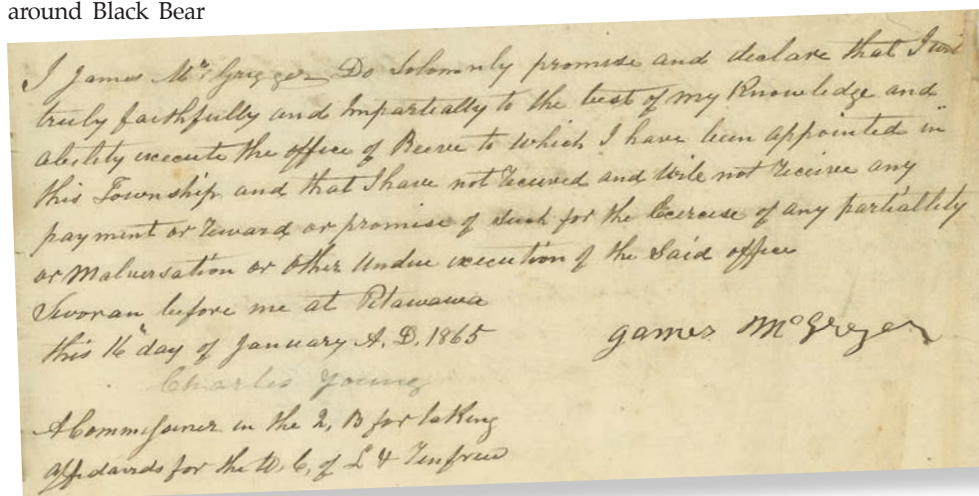 around Black Bear
I James McGrigger Do Solomnly promise and declare that I will
truly faithfully and Impartially to the best of my Knowledge and
abelity execute the office of Reeve to which I have been appointed in
this Township and that I have not Received and Will not Receive any
payment or Reward or promise of such for the Exercise of any partiallity
or Malversation or Other Undue execution of the Said office
Sworan before me at Petawawa
this 16" day of January A.D. 1865
James McGreger
Charles Young
A Commisoiner in the 2, B for taking
affedavids for the U, C, of L & Renfrew